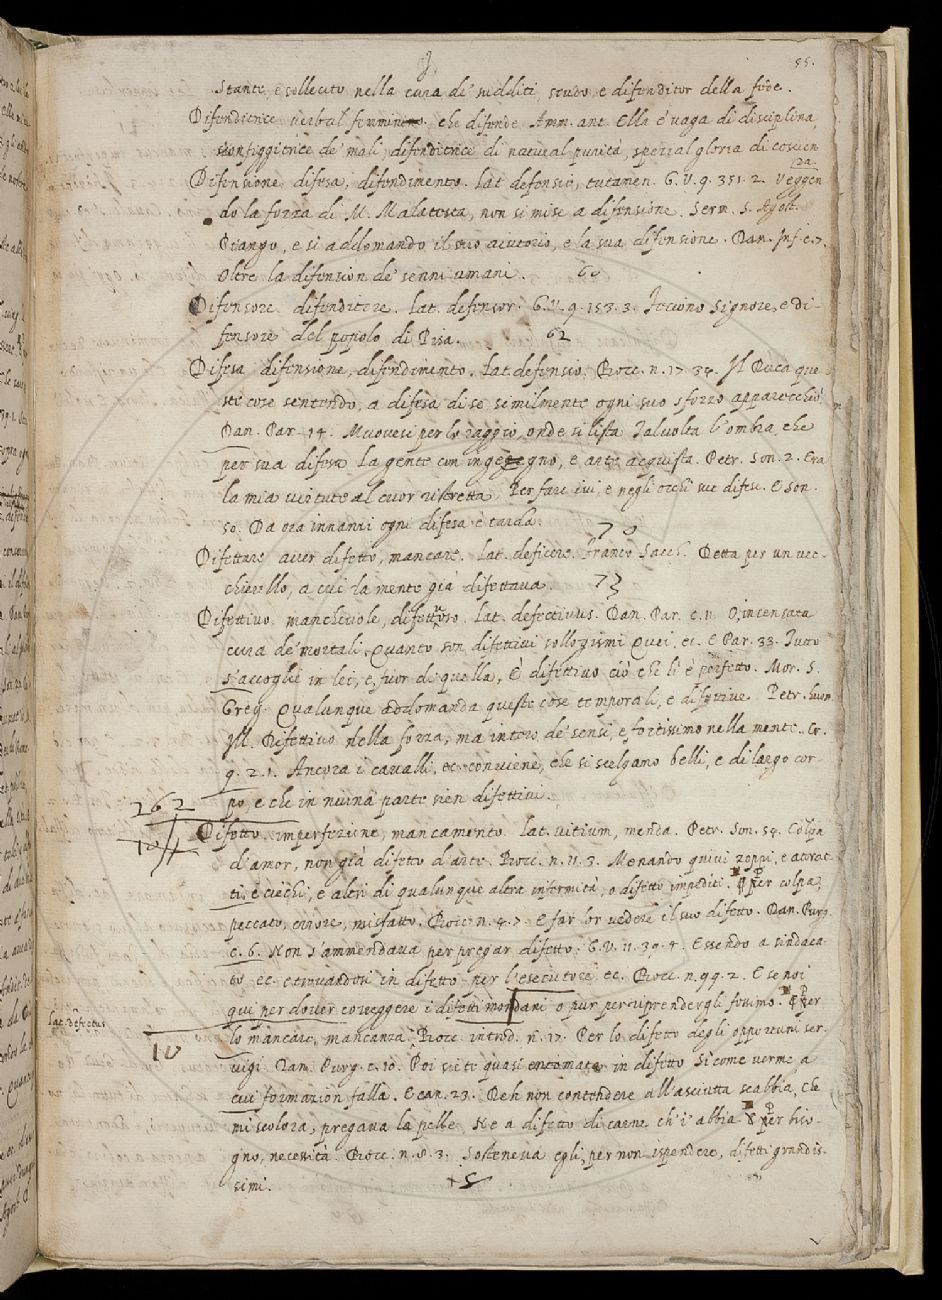 55.
stante, e sollecito nella cura de' sudditi, scudo e difenditor della fede.
Difenditrice verbal femminino. che difende Amm. ant. Ella è vaga di disciplina,
sconfiggitrice de' mali, difenditrice di natural purità, spezial gloria di coscien
za.
Difensione difesa, difendimento. lat. defensio, tutamen. G. V. 9. 351. 2. Veggen
do la forza di M. Malatesta, non si mise a difensione. Serm. S. Agost.
Piango, e si addomando il suo aiutorio, e la sua difensione. Dan. Inf. c. 7.
Oltre la difension de' senni umani. 60
Difensore. difenditore. lat. defensor. G. V. 9. 153. 3. Feciono Signore, e di-
fensore del popolo di Pisa. 62
Difesa difensione, difendimento. lat. defensio. Bocc. n. 17. 34. Il Duca que
ste cose sentendo, a difesa di se similmente ogni suo sforzo apparecchiò
Dan. Par. 14. Muovesi per lo raggio, onde si lista Talvolta l'ombra, che
per sua difesa La gente con ingegno, e arte acquista. Petr. Son. 2. Era
la mia virtute al cuor ristretta Per fare ivi, e negli occhi sue difese. E Son.
80. Da ora innanzi ogni difesa è tarda. 70
Difettare aver difetto, mancare. lat. deficere. Franco Sacch. Detta per un vec-
chierello, a cui la mente già difettava. 73
Difettivo manchevole, difettuoso. lat. defectivus. Dan. Par. c. 11. O, insensata
cura de' mortali, Quanto son difettivi sollogismi Quei, ec. E Par. 33. Tutto
s'accoglie in lei, e, fuor di quella, È difettivo ciò che lì è perfetto. Mor. S.
Greg. Qualunque addomanda queste cose temporali, e difettive. Petr. huom.
Ill. Difettivo nella forza, ma intero de' sensi, e fortissimo nella mente. Cr.
9. 2. 1. Ancora i cavalli, ec. conviene, che si scelgano belli, e di largo cor-
po, e che in niuna parte sien difettivi.
262
10
Difetto imperfezione, mancamento. Lat. vitium, menda. Petr. Son. 54. Colpa
d'amor, non già difetto d'arte. Bocc. n. 11. 3. Menando quivi zoppi, e attrat-
ti, e ciechi, e altri di qualunque altra infermità, o difetto impediti. ¶ per colpa,
peccato, errore, misfatto. Bocc. n. 4. 7. E far lor vedere il suo difetto. Dan. Purg.
c. 6. Non s'ammendava per pregar difetto. G. V. 11. 39. 4. Essendo a sindaca-
to ec. e trovandosi in difetto per l'esecutore ec. Bocc. n. 99. 2. E se noi
qui per dover correggere i difetti mondani o pur per riprendergli fossimo. ¶ per
lat. defectus
10
lo mancare, mancanza. Bocc. introd. n. 17. Per lo difetto degli opportuni ser-
vigi. Dan. Purg. c. 10. Poi siete quasi entomata in difetto Sì come verme a
cui formazion falla. E can. 23. Deh non contendere all'asciutta scabbia, Che
mi scolora, pregava la pelle, Ne a difetto di carne ch'i' abbia ¶ per biso-
gno, necessità. Bocc. n. 8. 3. Sosteneva egli, per non ispendere, difetti grandis-
simi. 15